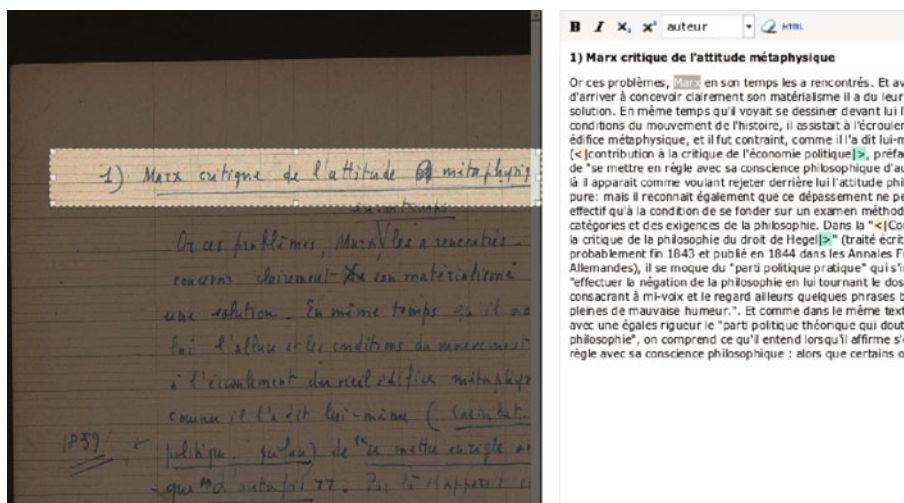 1) Marx critique de l'attitude métaphysiq
en son temps
Or ces problèmes, Marx les a rencontrés.
concevoir clairement son matérialisme
une solution. En même temps qu'il
lui l'allure et les conditions du mouvement
à l'écroulement du vieil édifice métaphys
comme il l'a dit lui-même (
1859
politique. préface) de "se mettre en règle
que d'autrefois". Par là il apparait
B I X₂ X² auteur HTML
1) Marx critique de l'attitude métaphysique
Or ces problèmes, Marx en son temps les a rencontrés. Et av
d'arriver à concevoir clairement son matérialisme il a du leur
solution. En même temps qu'il voyait se dessiner devant lui l'
conditions du mouvement de l'histoire, il assistait à l'écrouler
édifice métaphysique, et il fut contraint, comme il l'a dit lui-m
(<|contribution à la critique de l'économie politique|>, préfac
de "se mettre en règle avec sa conscience philosophique d'au
là il apparait comme voulant rejeter derrière lui l'attitude phil
pure: mais il reconnait également que ce dépassement ne pe
effectif qu'à la condition de se fonder sur un examen méthod
catégories et des exigences de la philosophie. Dans la "<|Con
la critique de la philosophie du droit de Hegel|>" (traité écrit
probablement fin 1843 et publié en 1844 dans les Annales Fr
Allemandes), il se moque du "parti politique pratique" qui s'i
"effectuer la négation de la philosophie en lui tournant le dos
consacrant à mi-voix et le regard ailleurs quelques phrases b
pleines de mauvaise humeur.". Et comme dans le même text
avec une égales rigueur le "parti politique théorique qui dout
philosophie", on comprend ce qu'il entend lorsqu'il affirme s'e
règle avec sa conscience philosophique : alors que certains o